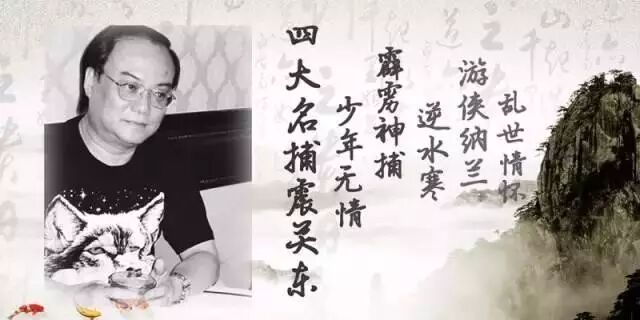 四大名捕震关东
少年无情
霹雳神捕
逆水寒
游侠纳兰
乱世情怀